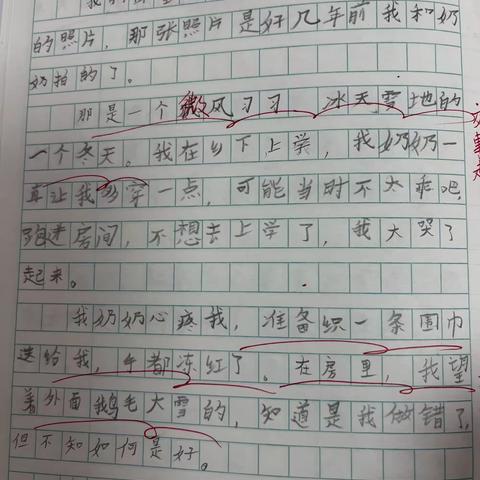 的照片，那张照片是好几年前我和奶
奶拍的了。
那是一个微风习习 冰天雪地的
一个冬天。我在乡下上学，我奶奶一
直让我多穿一点，可能当时不太乖吧，
跑进房间，不想去上学了，我大哭了
起来。
我奶奶心疼我，准备织一条围巾
送给我，手都冻红了。在房里，我望
着外面鹅毛大雪的，知道是我做错了，
但不知如何是好。